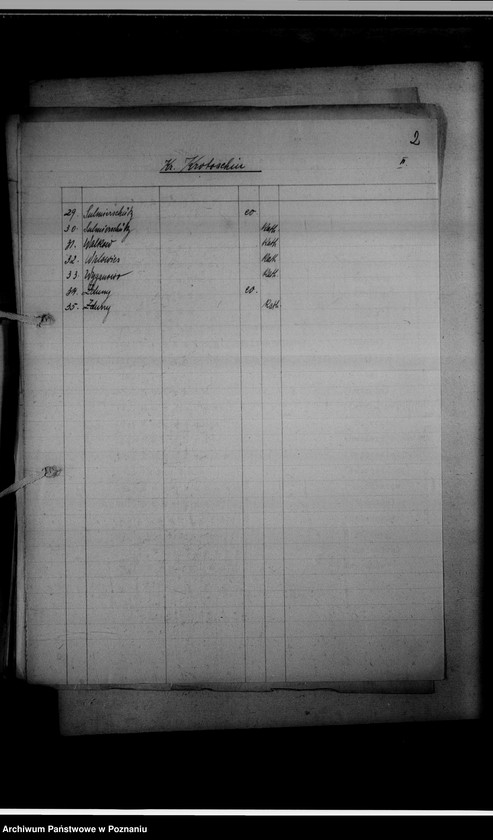 2
Kr. Krotoschin
29. Sulmierschütz ev.
30. Sulmierschütz Kath.
31. Walkow Kath.
32. Kath.
33. Kath.
34. Zduny ev.
35. Zduny Kath.
Archiwum Państwowe w Poznaniu